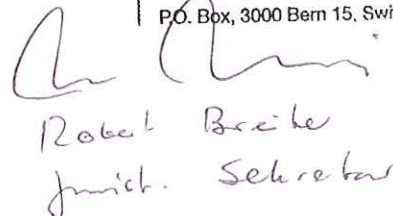 P.O. Box, 3000 Bern 15, Swi
Robert Breiter
jurist. Sekretär